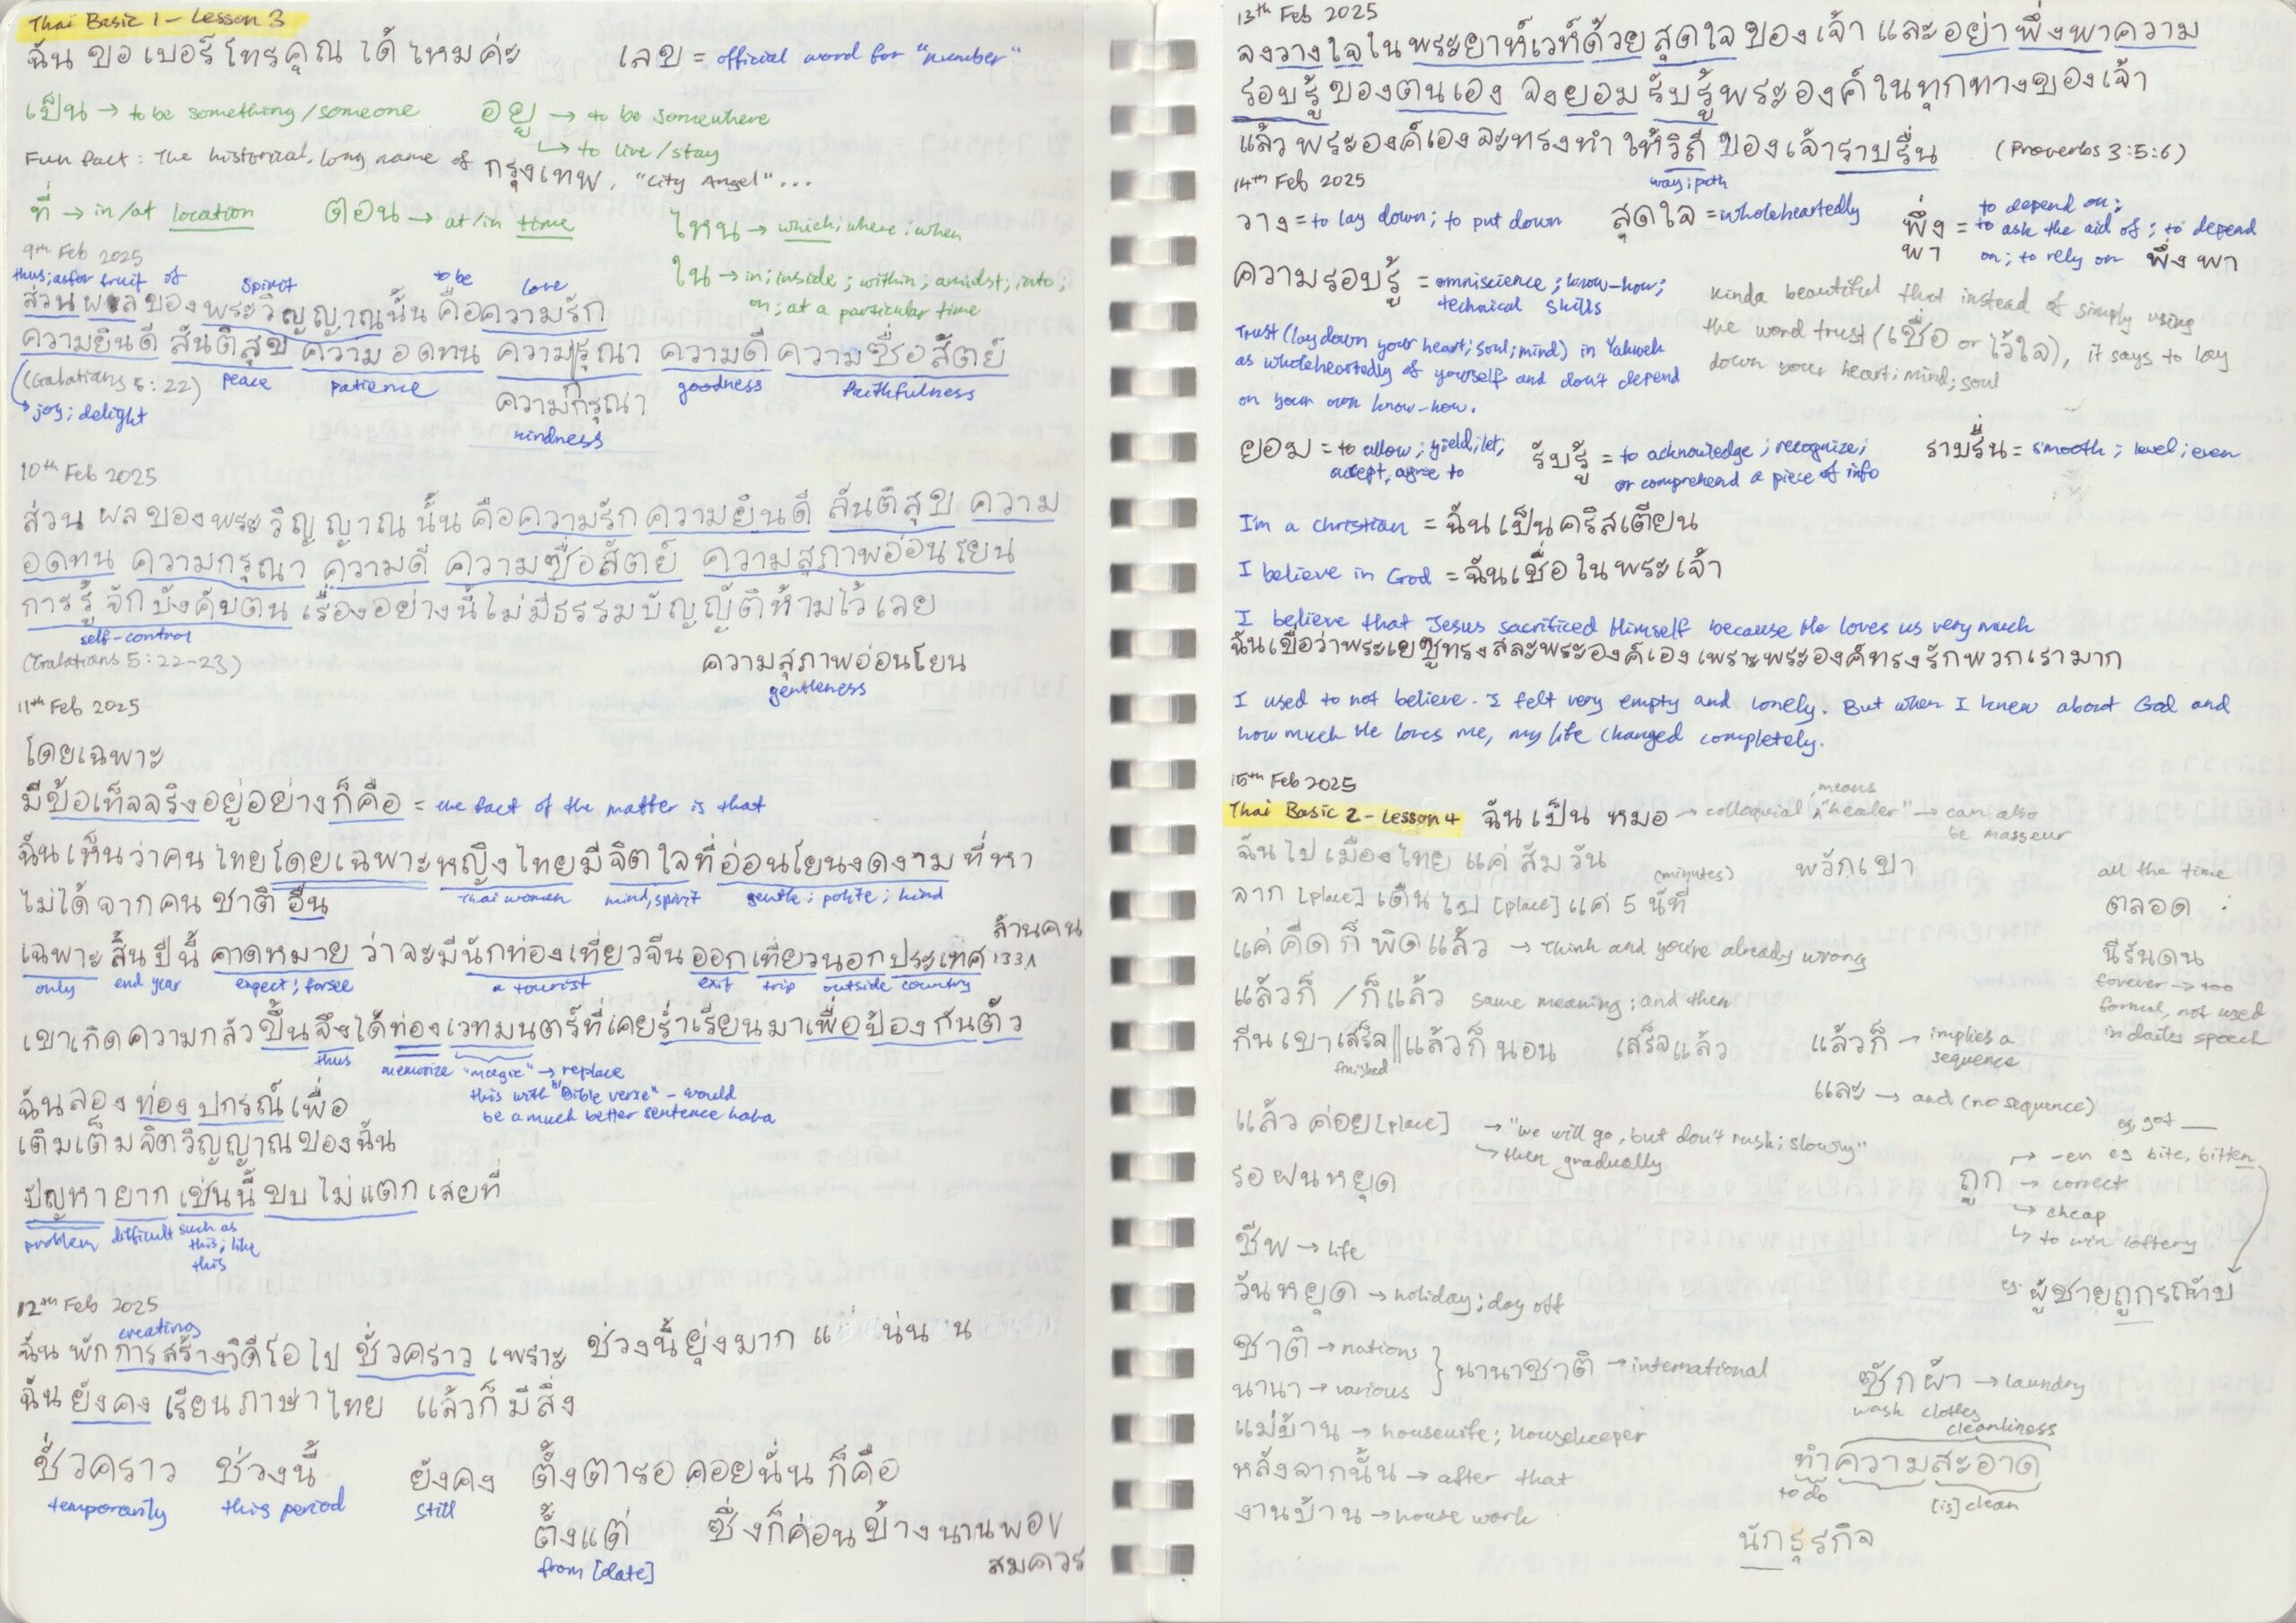 Thai Basic 1 - Lesson 3
ฉัน ขอ เบอร์ โทร คุณ ได้ ไหม ค่ะ
เลข = official word for "number"
เป็น → to be something/someone
อยู่ → to be somewhere
↳ to live/stay
Fun fact: The historical, long name of กรุงเทพ, "City Angel"...
ที่ → in/at location
ตอน → at/in time
ไหน → which; where; when
ใน → in; inside; within; amidst; into;
on; at a particular time
9th Feb 2025
thus; as for fruit of Spirit to be love
ส่วน ผล ของ พระวิญญาณนั้น คือความรัก
ความยินดี สันติสุข ความ อดทน ความ กรุณา ความดี ความ ซื่อ สัตย์
(Galatians 5:22) peace patience goodness faithfulness
joy; delight
ความกรุณา
kindness
10th Feb 2025
ส่วน ผล ของ พระ วิญญาณ นั้น คือความรัก ความยินดี สันติสุข ความ
อดทน ความกรุณา ความดี ความซื่อสัตย์ ความสุภาพอ่อนโยน
การรู้ จัก บังคับตน เรื่องอย่างนี้ไม่มีธรรมบัญญัติห้ามไว้ เลย
self-control
(Galatians 5:22-23)
ความสุภาพอ่อนโยน
gentleness
11th Feb 2025
โดยเฉพาะ
มีข้อเท็จจริงอยู่อย่างก็คือ = the fact of the matter is that
ฉันเห็นว่าคนไทยโดยเฉพาะหญิงไทยมีจิตใจที่อ่อนโยนงดงาม ที่ หา
Thai women mind, spirit gentle; polite; kind
ไม่ได้ จาก คน ชาติ อื่น
ล้านคน
เฉพาะ สิ้น ปี นี้ คาดหมาย ว่าจะมีนักท่องเที่ยวจีนออกเที่ยวนอกประเทศ 133
only end year expect; forsee a tourist exit trip outside country
เขาเกิดความกลัวขึ้นจึงได้ท่องเวทมนตร์ที่เคยร่ำเรียนมาเพื่อป้องกันตัว
thus memorize "magic" → replace
this with "Bible verse" - would
be a much better sentence haha
ฉันลองท่อง ปกรณ์ เพื่อ
เติมเต็มจิตวิญญาณของฉัน
ปัญหา ยาก เช่นนี้ ขบ ไม่ แตก เสียที่
problem difficult such as
this; like
this
12th Feb 2025
creating
ฉัน พัก การสร้างวิดีโอ ไป ชั่วคราว เพราะ ช่วงนี้ยุ่งมาก
ฉัน ยังคง เรียน ภาษา ไทย แล้วก็ มี สิ่ง
ชั่วคราว ช่วงนี้ ยังคง ตั้งตารอ คอยนั่น ก็คือ
temporarity this period still
ตั้งแต่ ซึ่งก็ค่อนข้างนานพอ
from [date] สมควร
13th Feb 2025
จงวางใจในพระยาห์เวห์ด้วยสุดใจของเจ้า และอย่าพึ่งพาความ
รอบรู้ของตนเอง จงยอมรับรู้พระองค์ในทุกทางของเจ้า
แล้วพระองค์เองจะทรงทำให้วิถีของเจ้าราบรื่น (Proverbs 3:5:6)
way; path
14th Feb 2025
วาง = to lay down; to put down
สุดใจ = wholeheartedly
พึ่งพา = to depend on;
to ask the aid of; to depend
on; to rely on พึ่งพา
ความรอบรู้ = omniscience; know-how;
technical skills
Trust (lay down your heart; soul; mind) in Yahweh
as wholeheartedly of yourself and don't depend
on your own know-how.
Kinda beautiful that instead of simply using
the word trust (เชื่อ or ไว้ใจ), it says to lay
down your heart; mind; soul
ยอม = to allow; yield; let;
accept, agree to
รับรู้ = to acknowledge; recognize;
or comprehend a piece of info
ราบรื่น = smooth; level; even
I'm a christian = ฉันเป็นคริสเตียน
I believe in God = ฉันเชื่อในพระเจ้า
I believe that Jesus sacrificed Himself because He loves us very much
ฉันเชื่อว่าพระเยซูทรงสละพระองค์เองเพราะพระองค์ทรงรักพวกเรามาก
I used to not believe. I felt very empty and lonely. But when I knew about God and
how much He loves me, my life changed completely.
15th Feb 2025
Thai Basic 2 - Lesson 4 ฉันเป็น หมอ → colloquial, means "healer" → can also
be masseur
ฉันไปเมืองไทย แค่ สัมวัน
พวกเขา
(minutes)
จาก [place] เดิน ไป [place] แค่ 5 นัที่
แค่ คิด ก็ พิดแล้ว → think and you're already wrong
แล้วก็ / ก็แล้ว same meaning; and then
กีนเขาเสร็จ || แล้วก็ นอน เสร็จแล้ว
finished
all the time
ตลอด :
นีรันดน
forever → too
formal, not used
in daites speech
แล้วก็ → implies a
sequence
และ → and (no sequence)
แล้ว ค่อย [place] → "we will go, but don't rush; slowly"
↳ then gradually
รอ ฝน หยุด
eg, got __
ถูก → -en eg bite, bitten
→ correct
→ cheap
↳ to win lottery
eg. ผู้ชายถูกรถทับ
ชีพ → life
วันหยุด → holiday; day off
ชาติ → nations
นานา → various
นานาชาติ → international
แม่บ้าน → housewife; housekeeper
หลังจากนั้น → after that
งานบ้าน → house work
ซักผ้า → laundry
wash clothes
cleanliness
ทำความสะอาด
to do [is] clean
นักธุรกิจ